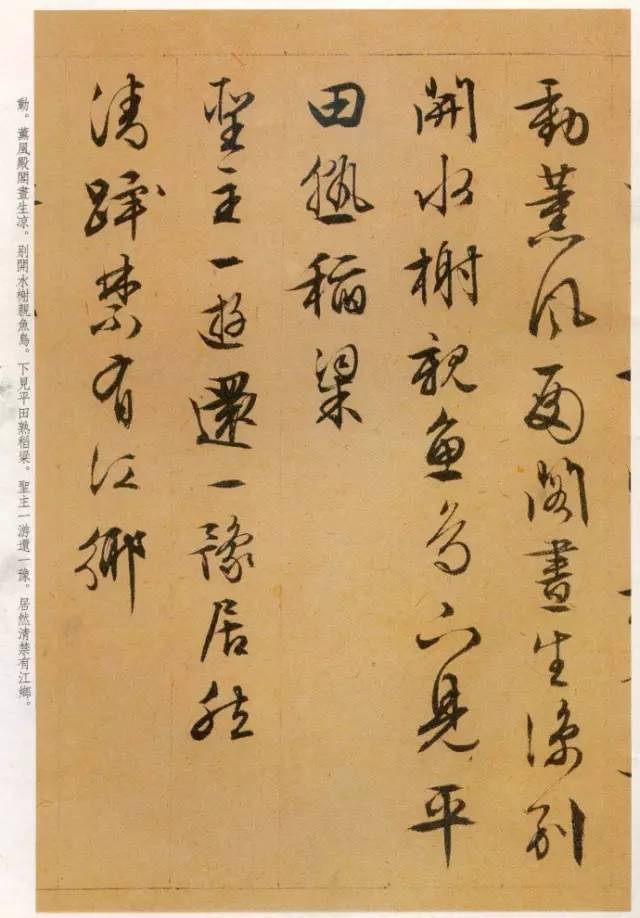 動薰風閣晝生涼别
開水榭親魚鳥下見平
田熟稻梁
聖主一遊還一豫居然
清蹕禁有江鄉
動。薰風殿閣晝生凉。别開水榭親魚鳥。下見平田熟稻粱。聖主一游還一豫。居然清禁有江鄉。